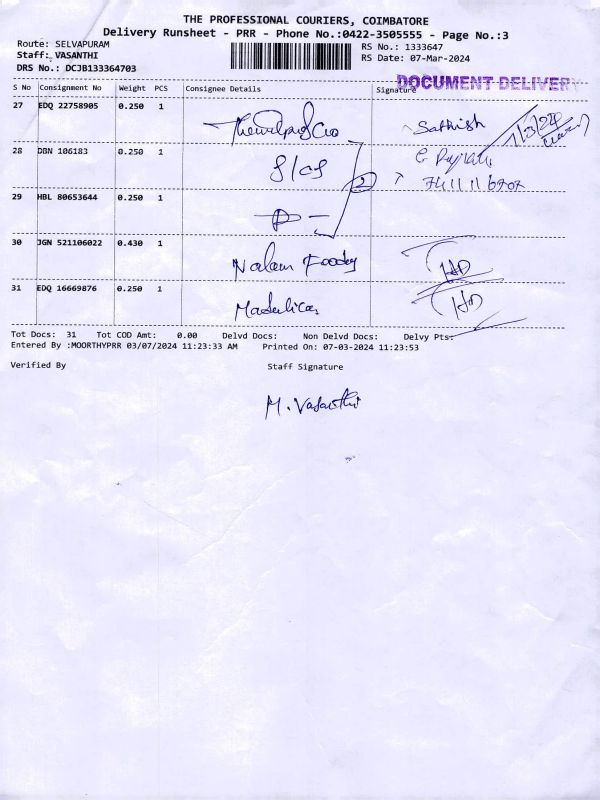 THE PROFESSIONAL COURIERS, COIMBATORE
Delivery Runsheet - PRR - Phone No.:0422-3505555 - Page No.:3
Route: SELVAPURAM
RS No.: 1333647
Staff: VASANTHI
RS Date: 07-Mar-2024
DRS No.: DCJB133364703
DOCUMENT DELIVER
S No Consignment No Weight PCS Consignee Details Signature
27 EDQ 22758905 0.250 1 Sathish
28 DBN 106183 0.250 1
2
29 HBL 80653644 0.250 1
30 JGN 521106022 0.430 1 Nalam Foods
31 EDQ 16669876 0.250 1
Tot Docs: 31 Tot COD Amt: 0.00 Delvd Docs: Non Delvd Docs: Delvy Pts:
Entered By :MOORTHYPRR 03/07/2024 11:23:33 AM Printed On: 07-03-2024 11:23:53
Verified By Staff Signature
M. Vasanthi